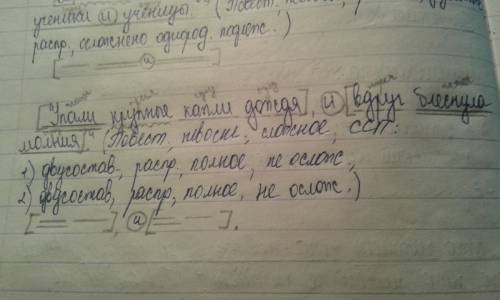 ученики и ученицы. (Повест.,
распр., осложнено однород. подлеж.)
[ и ]
глагол прил. сущ. сущ. нареч. глагол
["Упали крупные капли дождя] и [вдруг блеснула
молния]" (Повест., невоскл., сложное, ССП:
1) двусостав., распр., полное, не ослож.,
2) двусостав., распр., полное, не ослож.)
[ ], и [ ].